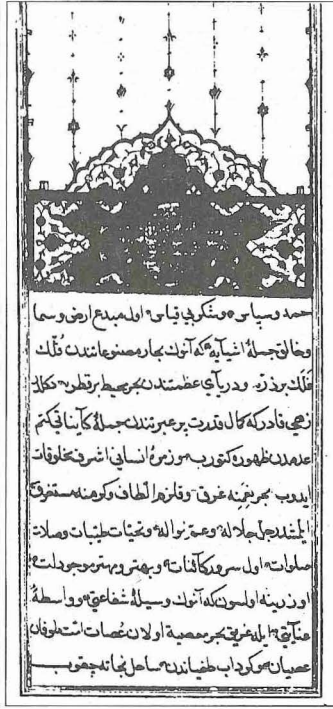 حمد وسپاس وشكر بى قياس اول مبدع ارض وسما
وخالق جملهٔ اشيايه كه آنوك بحار مصنوعاتندن فُلك
فَلك بر ذرّه ودرياى عظمتندن بحر محيط بر قطره دكلدر
زهى قادر كه كمال قدرت بر عبرتندن جملهٔ كايناتى كتم
عدمدن ظهوره كتوروب زمرهٔ انسانى اشرف مخلوقات
ايدوب بحر نعمنه غرق وقلزم الطاف وكرمنه مستغرق
ايلمشدر جل جلاله وعم نواله وتحيّات طيّبات وصلات
صلوات اول سرور كآئنات وبهتر ومهتر موجودات
اوزرينه اولسون كه آنوك وسيلهٔ شفاعتى وواسطهٔ
عنايتى ايله غريق بحر معصية اولان عُصات امّت طوفان
عصيان وكرداب طغياندن ساحل نجاته چقوب